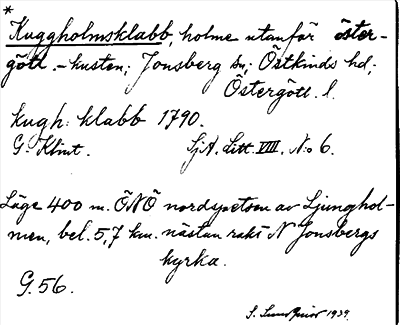 *
Kuggholmsklabb, holme utanför öster-
götl.-kusten; Jonsberg sn; Östkinds hd;
Östergötl. l.
kugh: klabb 1790.
G. Klint. SjA. Litt. VIII, No 6.
Läge 400 m. ÖNÖ nordspetsen av Ljunghol-
men, bel. 5,7 km. nästan rakt N Jonsbergs
kyrka.
G. 56.
S. 1939.